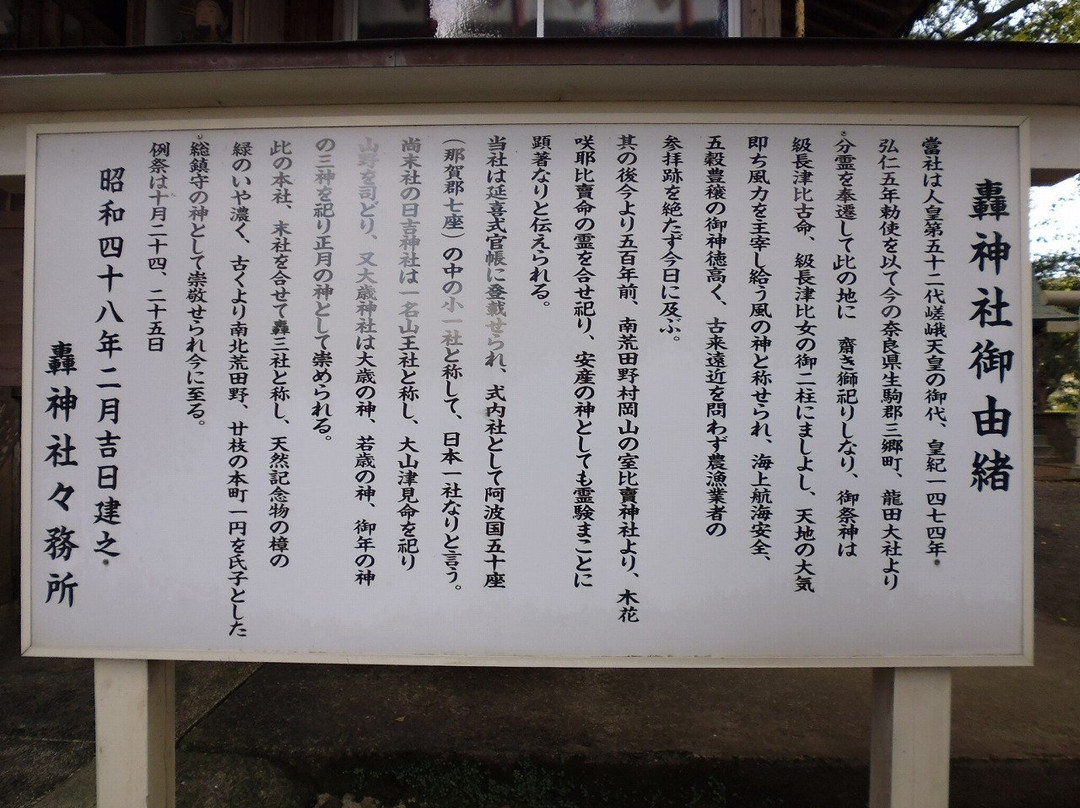 轟神社御由緒
當社は人皇第五十二代嵯峨天皇の御代、皇紀一四七四年
弘仁五年勅使を以て今の奈良県生駒郡三郷町、龍田大社より
分霊を奉遷して此の地に 齋き獅祀りしなり、御祭神は
級長津比古命、級長津比女の御二柱にましよし、天地の大気
即ち風力を主宰し給う風の神と称せられ、海上航海安全、
五穀豊穣の御神徳高く、古来遠近を問わず農漁業者の
参拝跡を絶たず今日に及ぶ。
其の後今より五百年前、南荒田野村岡山の室比賣神社より、木花
咲耶比賣命の霊を合せ祀り、安産の神としても霊験まことに
顕著なりと伝えられる。
当社は延喜式官帳に登載せられ、式内社として阿波国五十座
（那賀郡七座）の中の小一社と称して、日本一社なりと言う。
尚末社の日吉神社は一名山王社と称し、大山津見命を祀り
山野を司どり、又大歳神社は大歳の神、若歳の神、御年の神
の三神を祀り正月の神として崇められる。
此の本社、末社を合せて轟三社と称し、天然記念物の樟の
緑のいや濃く、古くより南北荒田野、廿枝の本町一円を氏子とした
総鎮守の神として崇敬せられ今に至る。
例祭は十月二十四、二十五日
昭和四十八年二月吉日建之
轟神社々務所